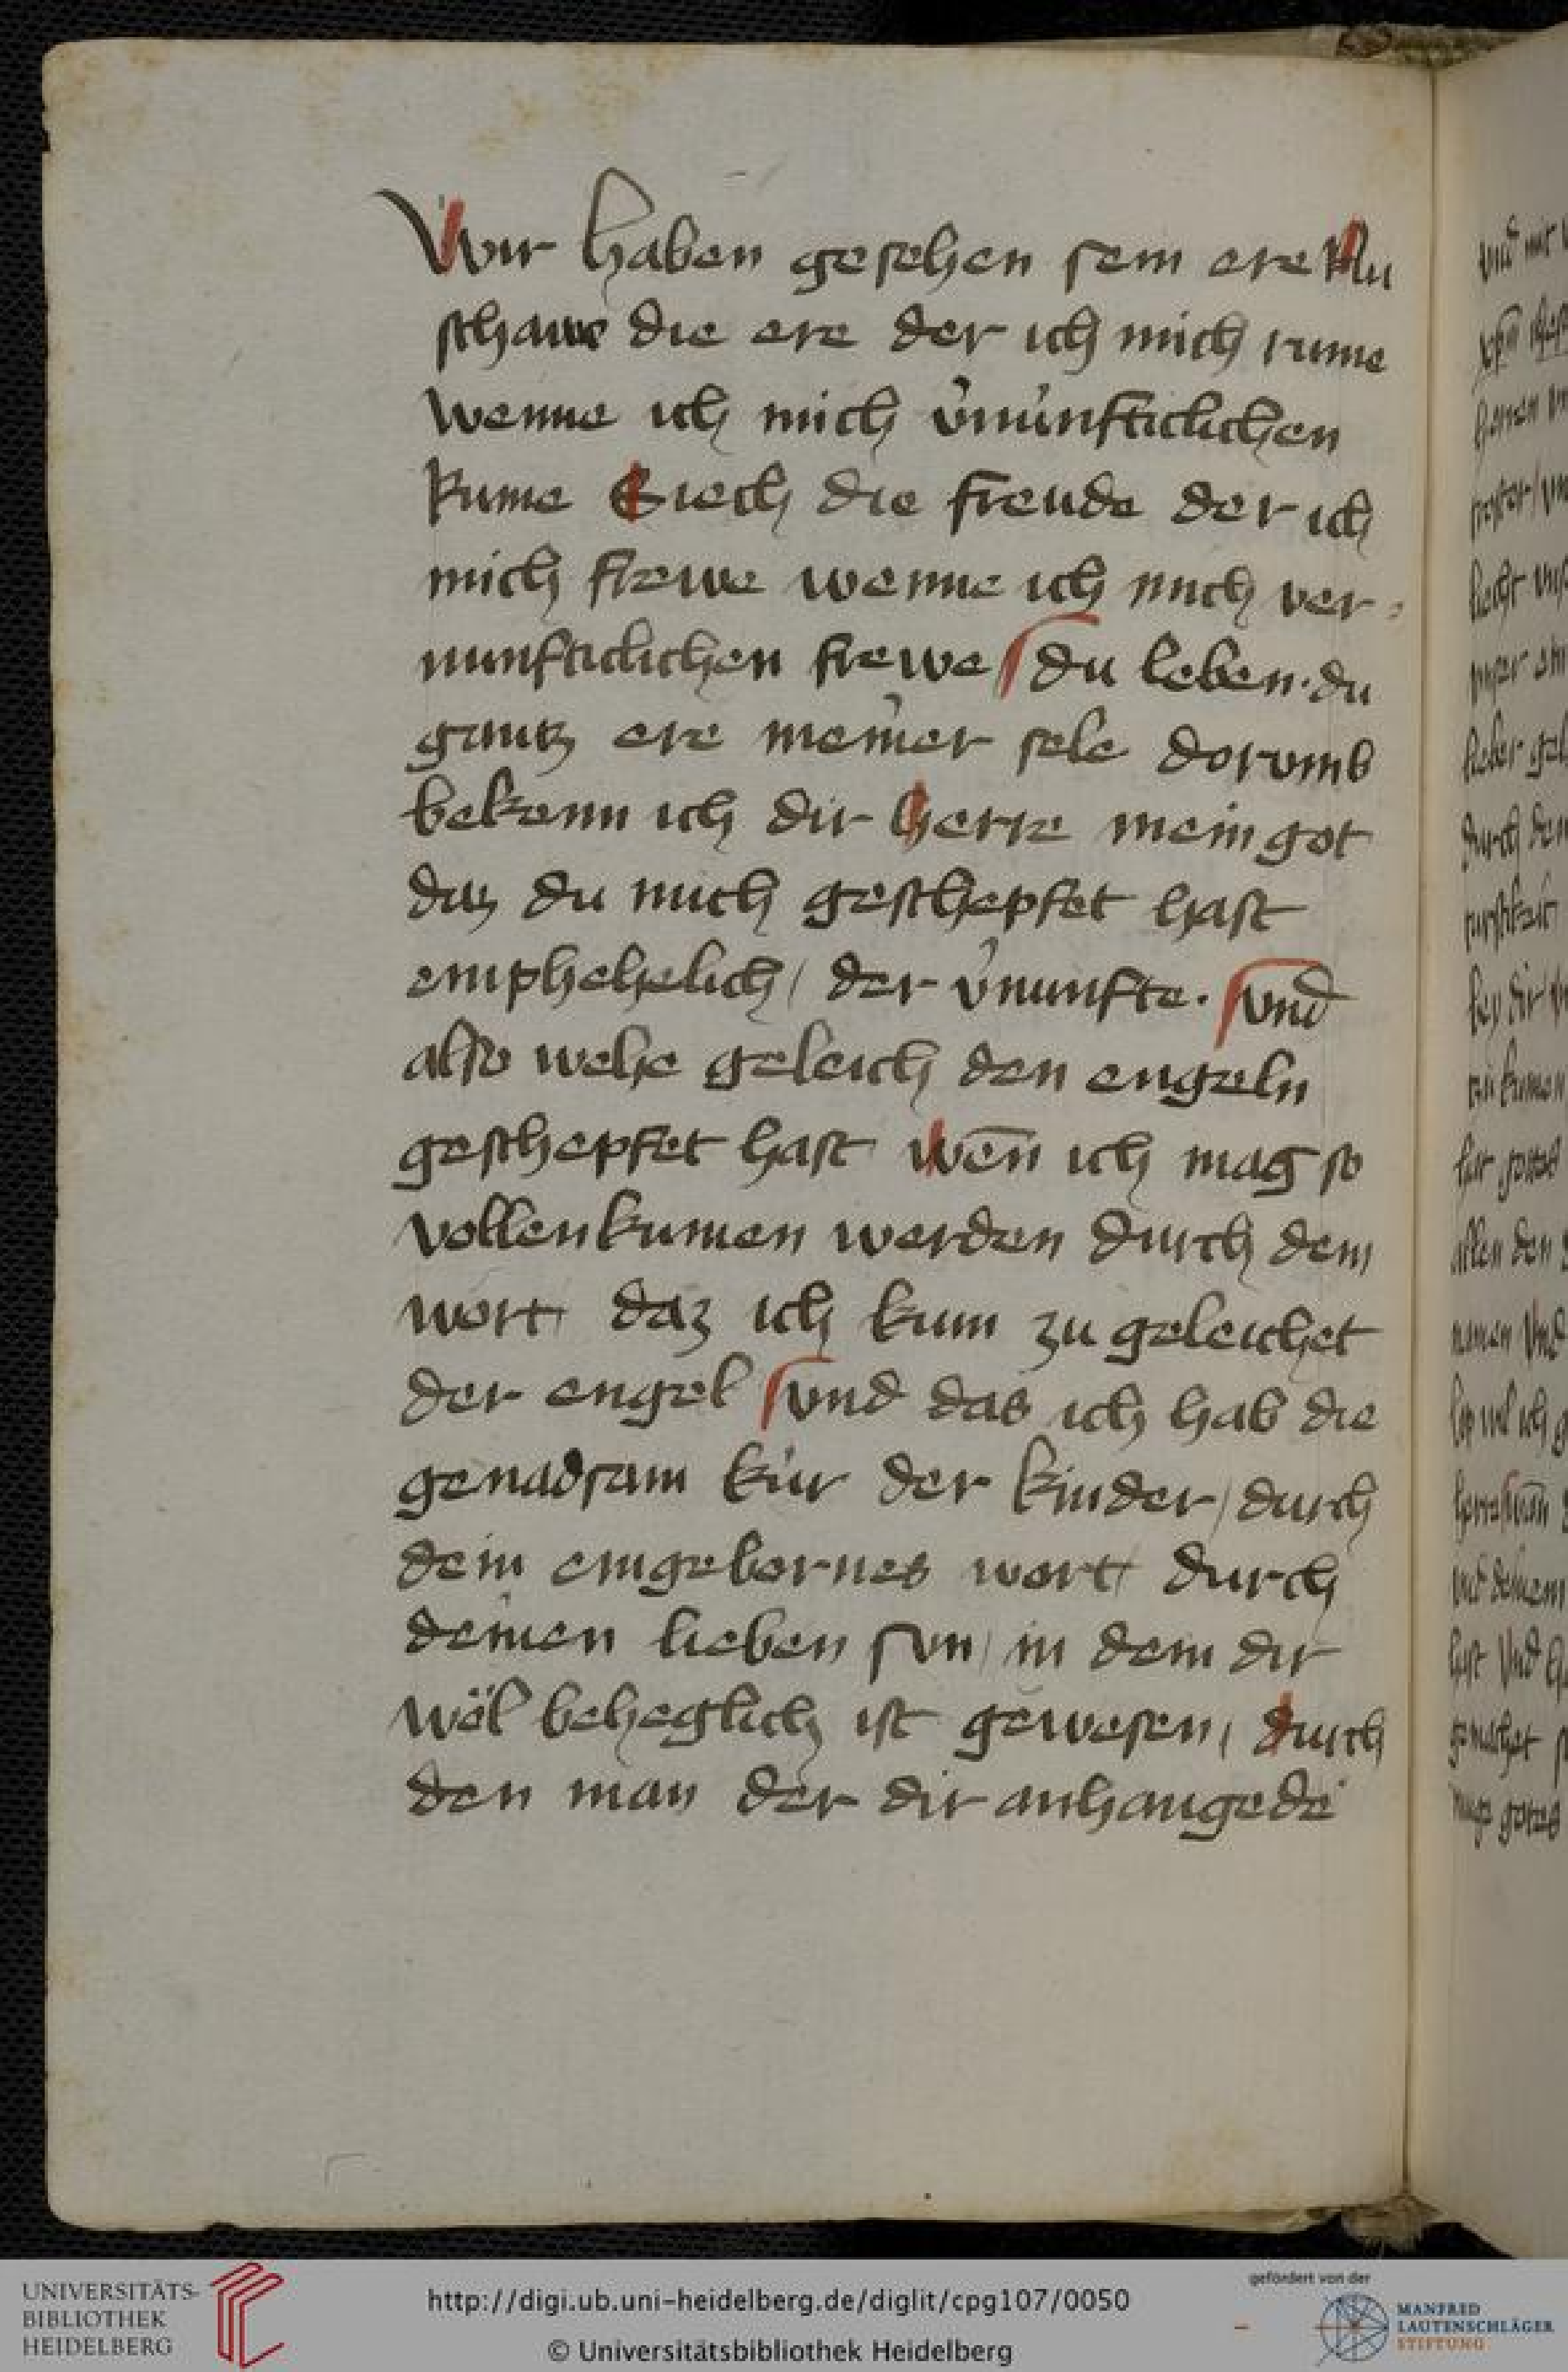 Wir haben gesehen sein ere Nu
schawe die ere der ich mich rume
wenne ich mich v̉nu̇nfticlichen
kume Siech die freude der ich
mich frewe wenne ich mich ver-
nunfticlichen frewe du leben. du
gantz ere meiner sele dorvmb
bekenn ich dir herre mein got
daz du mich geschepfet hast
emphehelich / der v̉nunfte. vnd
also wehe geleich den engeln
geschepfet hast wen̄ ich mag so
vollenkumen werden durch dein
wort daz ich kum zu geleichet
der engel vnd das ich hab die
genadsam ku̇r der kinder / durch
dein eingebornes wort durch
deinen lieben sun / in dem dir
wöl beheglich ist gewesen / durch
den man der dir anhangede
UNIVERSITÄTS-
BIBLIOTHEK
HEIDELBERG
http://digi.ub.uni-heidelberg.de/diglit/cpg107/0050
© Universitätsbibliothek Heidelberg
gefördert von der
MANFRED
LAUTENSCHLÄGER
STIFTUNG